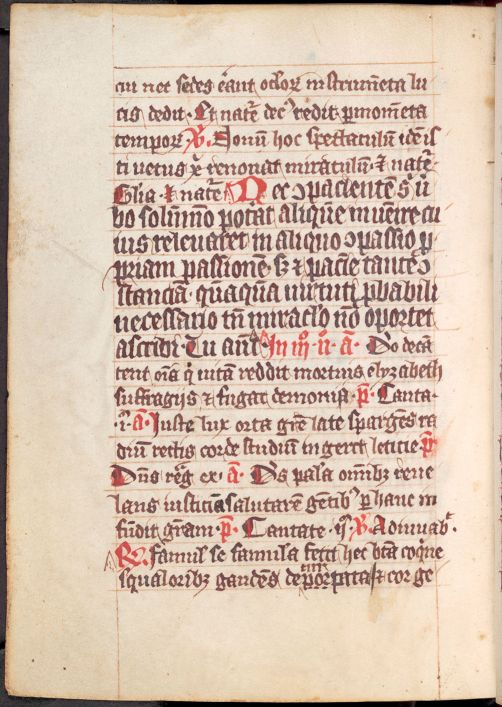 cui nec sedes erant oclor instrumeta lu
cis dedit. Et nate dec redit p mometa
tempor V. Donu hoc spectaculu ide is
ti vetus xr renovat miraculu. Et nate.
Glia. Et nate Nec ɔpacientes u
bo solumo potat alique muenire cu
ius relevaret in aliquo ɔpassio p
priam passione. sz et pacie tante ɔ
stancia qua qua virtuti pbabili
necessario tn miraclo no oportet
ascribi. Tu aute. In iii n. a. Deo decan
tent oia qi vitam reddit mortuis elyzabeth
suffragijs et fugat demonia. p. Canta.
i. a. Iuste lux orta gre late sparges ra
diu rectis corde studiu ingerit leticie p
Dns reg ex. a. Ds pala omibz reve
lans iusticia salutare getib per hanc in
fudit gram. p. Cantate. ii. V. Adiuvab.
R. famul se famula fecit hec bta coqne
squaloribz gaudes de pata et cor ge